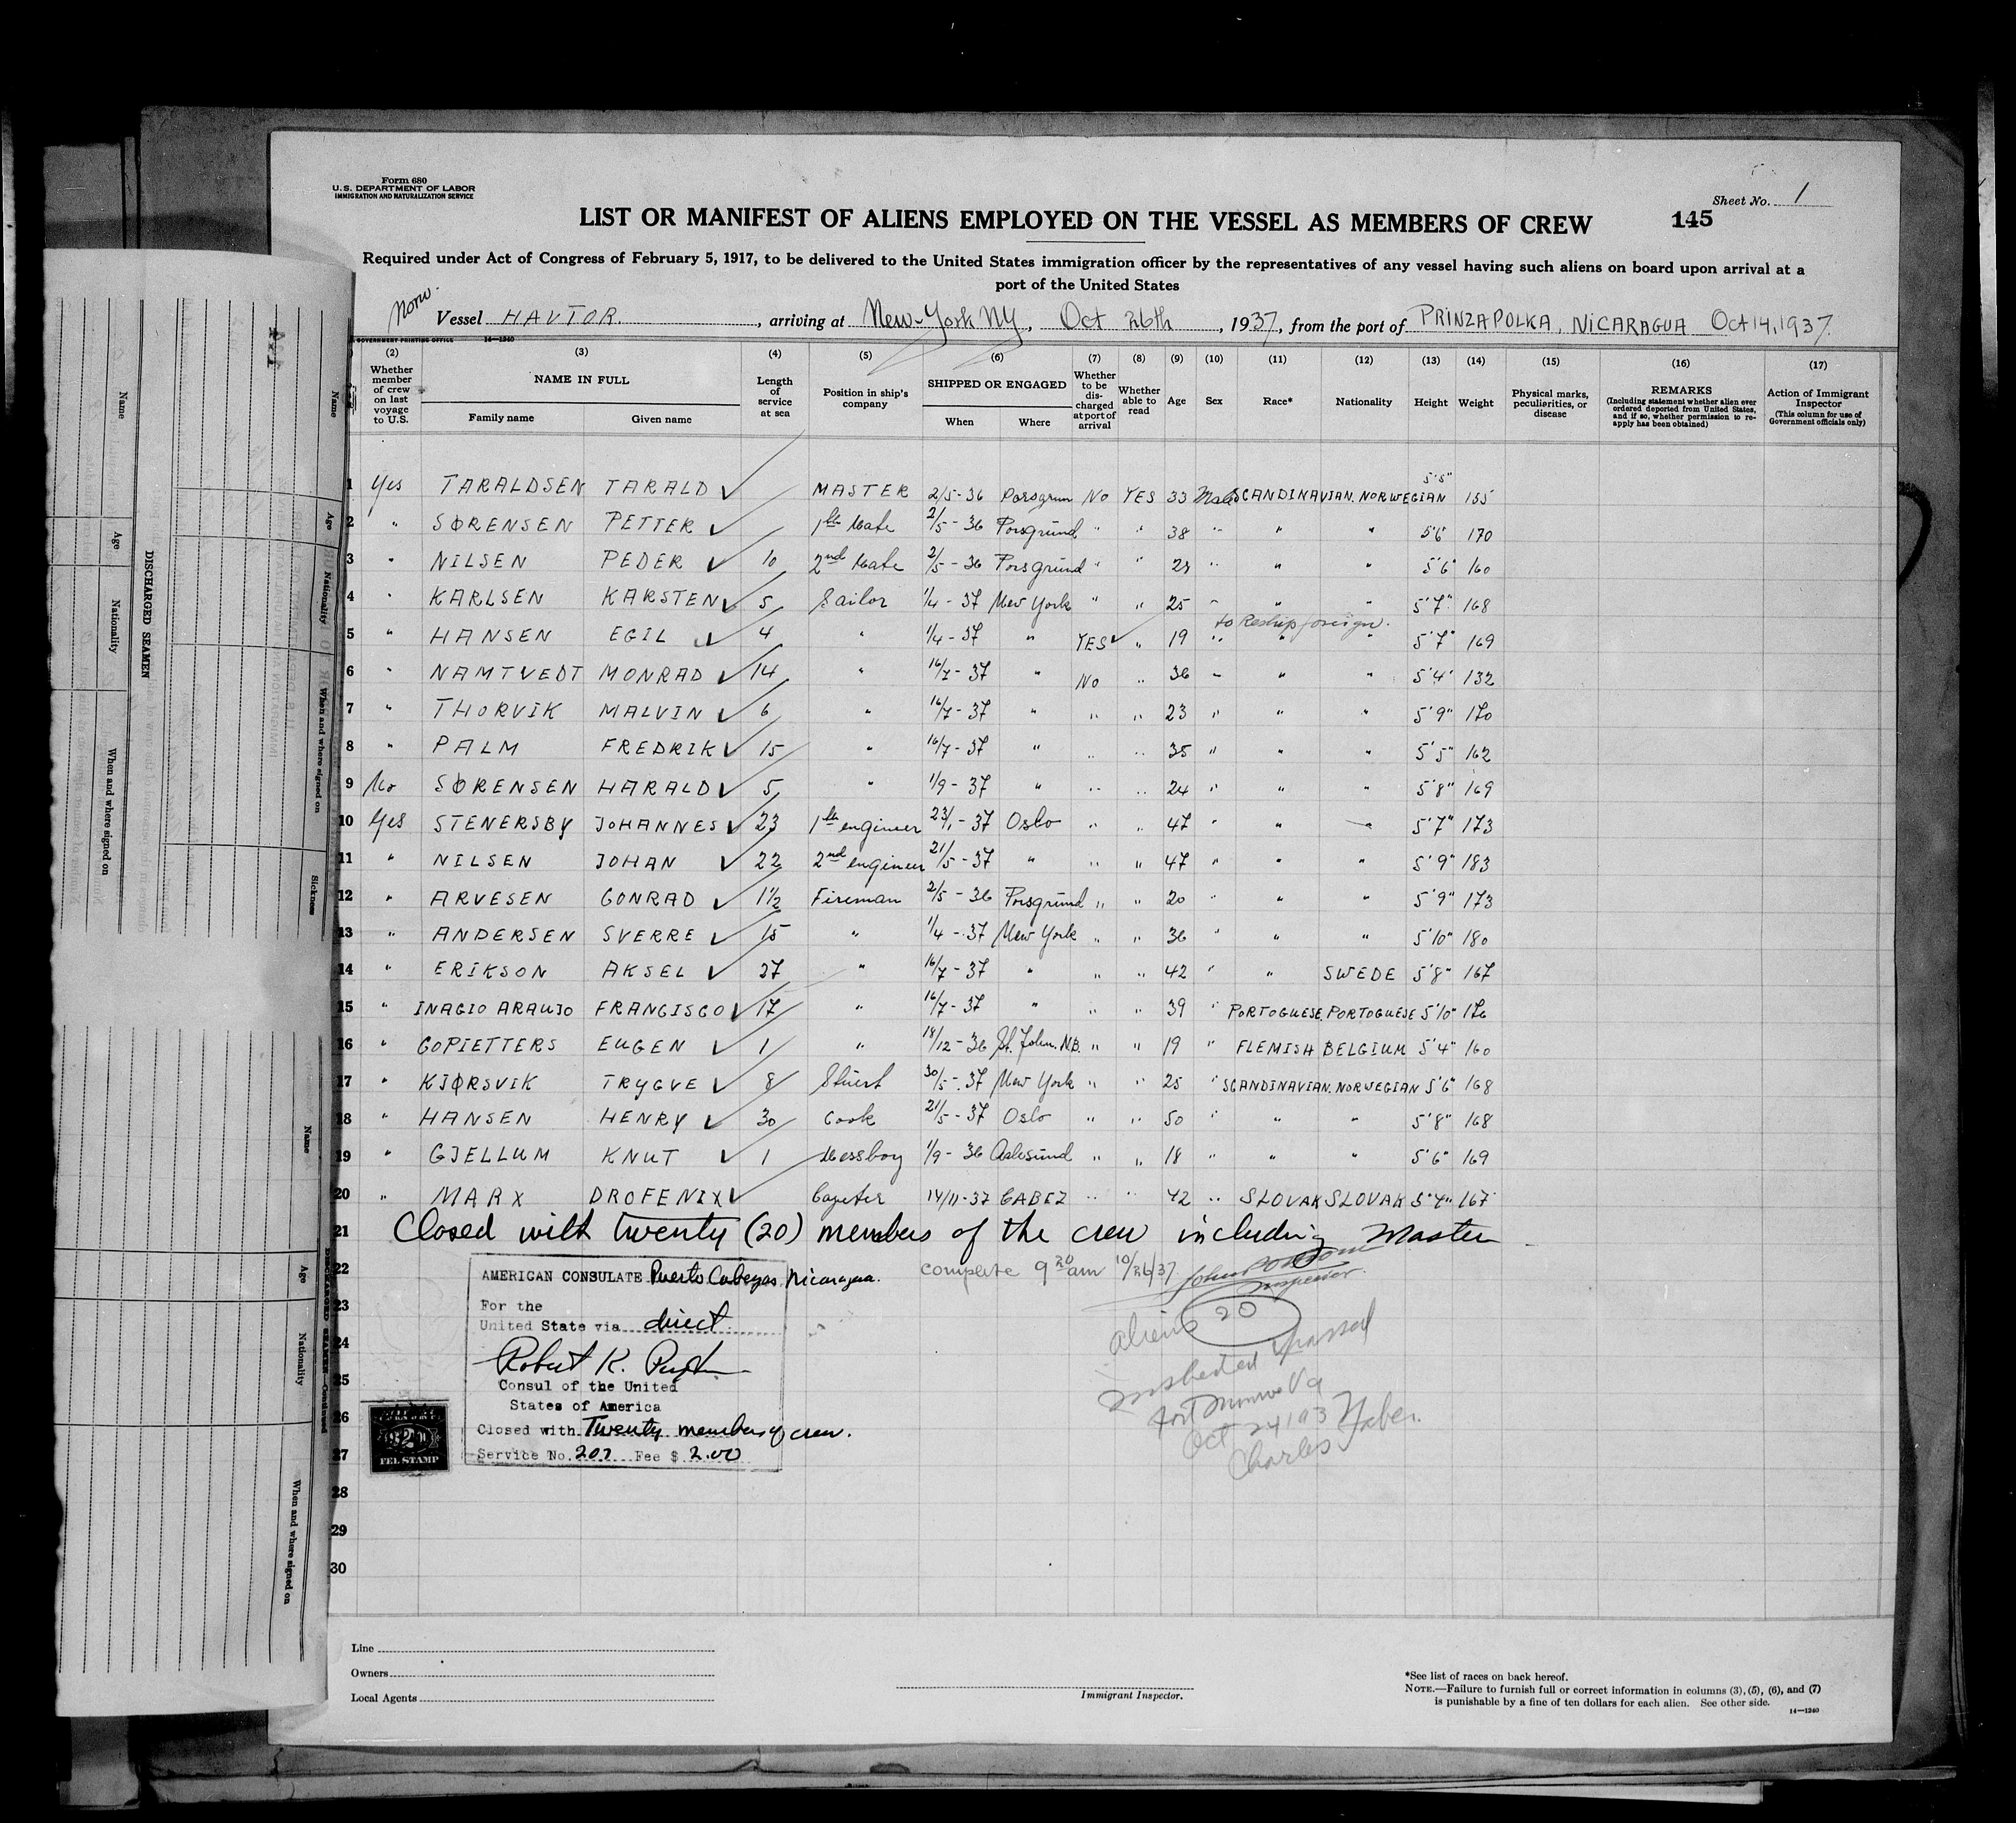 Form 680
U.S. DEPARTMENT OF LABOR
IMMIGRATION AND NATURALIZATION SERVICE
Sheet No. 1
LIST OR MANIFEST OF ALIENS EMPLOYED ON THE VESSEL AS MEMBERS OF CREW 145
Required under Act of Congress of February 5, 1917, to be delivered to the United States immigration officer by the representatives of any vessel having such aliens on board upon arrival at a
port of the United States
Norw. Vessel HAVTOR., arriving at New-York NY, Oct 26th, 1937, from the port of PRINZAPOLKA, NICARAGUA Oct 14, 1937.
GOVERNMENT PRINTING OFFICE 14—1240
(2) (3) (4) (5) (6) (7) (8) (9) (10) (11) (12) (13) (14) (15) (16) (17)
Whether member of crew on last voyage to U.S.
NAME IN FULL
Family name Given name
Length of service at sea
Position in ship's company
SHIPPED OR ENGAGED
When Where
Whether to be discharged at port of arrival
Whether able to read
Age Sex Race* Nationality Height Weight
Physical marks, peculiarities, or disease
REMARKS
(Including statement whether alien ever ordered deported from United States, and if so, whether permission to reapply has been obtained)
Action of Immigrant Inspector
(This column for use of Government officials only)
1 Yes TARALDSEN TARALD ✓ MASTER 2/5-36 Porsgrun No YES 33 Male SCANDINAVIAN. NORWEGIAN 5'5" 155
2 " SØRENSEN PETTER ✓ 1ste Mate 2/5-36 Porsgrund " " 38 " " " 5'6" 170
3 " NILSEN PEDER ✓ 10 2nd Mate 2/5-36 Porsgrund " " " " " 5'6" 160
4 " KARLSEN KARSTEN ✓ 5 Sailor 1/4-37 New York " " 25 " " " 5'7" 168
to Reship foreign.
5 " HANSEN EGIL ✓ 4 " 1/4-37 " YES ✓ " 19 " " " 5'7" 169
6 " NAMTVEDT MONRAD ✓ 14 " 16/7-37 " No " 36 " " " 5'4" 132
7 " THORVIK MALVIN ✓ 6 " 16/7-37 " " " 23 " " " 5'9" 170
8 " PALM FREDRIK ✓ 15 " 16/7-37 " " " 35 " " " 5'5" 162
9 No SØRENSEN HARALD ✓ 5 " 1/9-37 " " " 24 " " " 5'8" 169
10 Yes STENERSBY JOHANNES ✓ 23 1ste engineer 23/1-37 Oslo " " 47 " " " 5'7" 173
11 " NILSEN JOHAN ✓ 22 2nd engineer 21/5-37 " " " 47 " " " 5'9" 183
12 " ARVESEN CONRAD ✓ 1½ Fireman 2/5-36 Porsgrund " " 20 " " " 5'9" 173
13 " ANDERSEN SVERRE ✓ 15 " 1/4-37 New York " " 36 " " " 5'10" 180
14 " ERIKSON AKSEL ✓ 27 " 16/7-37 " " " 42 " " SWEDE 5'8" 167
15 " INACIO ARAUJO FRANCISCO ✓ 17 " 16/7-37 " " " 39 " PORTOGUESE. PORTOGUESE 5'10" 176
16 " COPIETTERS EUGEN ✓ 1 " 18/12-36 St. John. N.B. " " 19 " FLEMISH BELGIUM 5'4" 160
17 " KJØRSVIK TRYGVE ✓ 8 Stuert 30/5-37 New York " " 25 " SCANDINAVIAN. NORWEGIAN 5'6" 168
18 " HANSEN HENRY ✓ 30 Cook 21/5-37 Oslo " " 50 " " " 5'8" 168
19 " GJELLUM KNUT ✓ 1 Messboy 1/9-36 Aalesund " " 18 " " " 5'6" 169
20 " MARX DROFENIX ✓ 14/11-37 " " 42 " SLOVAK SLOVAK 5'4" 167
21 Closed with twenty (20) members of the crew including Master
22 AMERICAN CONSULATE Puerto Cabezas, Nicaragua.
complete 9 20 am 10/26/37
Inspector.
23 For the
United State via direct.
24 Robert K. Pugh
25 Consul of the United
States of America
26 Closed with Twenty members of crew.
27 Service No. 207 Fee $ 2.00
28
29
30
aliens 20
inspected & passed
Fort Monroe Va
Oct 24 193
Charles
$2
FEE STAMP
Line
Owners
Local Agents
Immigrant Inspector.
*See list of races on back hereof.
NOTE.—Failure to furnish full or correct information in columns (3), (5), (6), and (7)
is punishable by a fine of ten dollars for each alien. See other side.
14—1240
DISCHARGED SEAMEN
Name
Age
Nationality
When and where signed on
Name
Age
Nationality
When and where signed on
Sickness
DISCHARGED SEAMEN—Continued
Name
Age
Nationality
When and where signed on